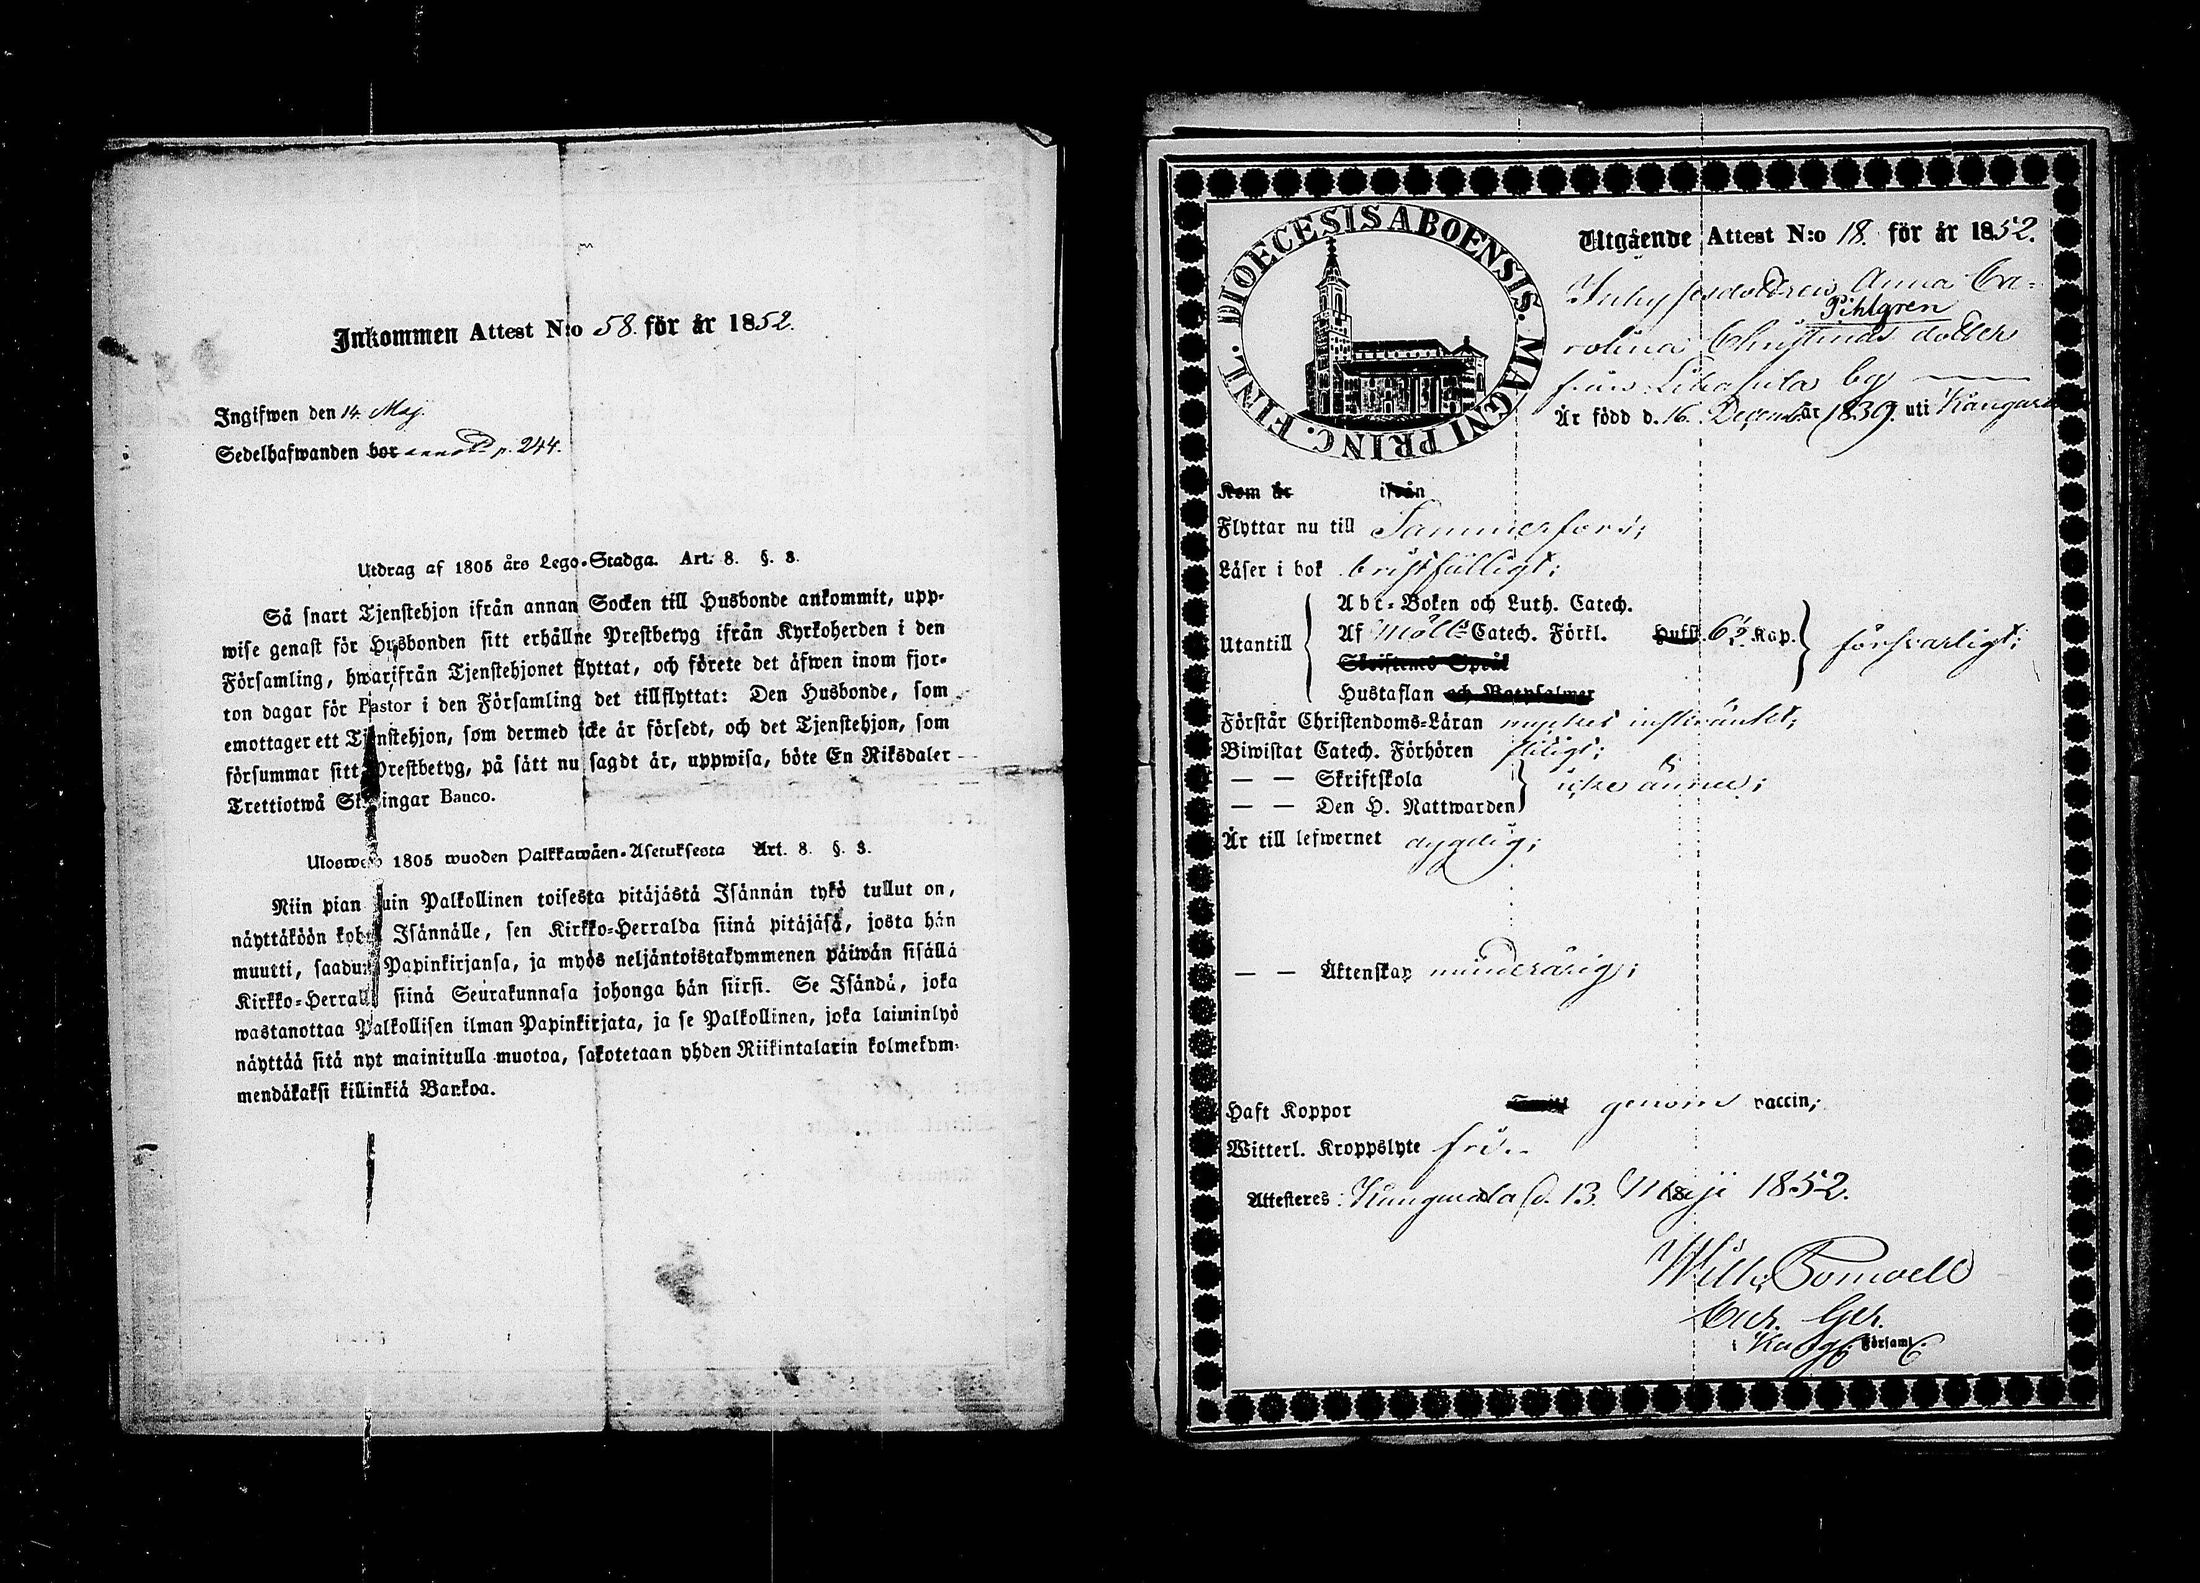 Inkommen Attest N:o 58. för år 1852.
Ingifwen den 14. Maj.
Sedelhafwanden bor annot. p. 244.
Utdrag af 1805 års Lego-Stadga. Art. 8. §. 8.
Så snart Tjenstehjon ifrån annan Socken till Husbonde ankommit, upp-
wise genast för Husbonden sitt erhållne Prestbetyg ifrån Kyrkoherden i den
Församling, hwarifrån Tjenstehjonet flyttat, och förete det äfwen inom fjor-
ton dagar för Pastor i den Församling det tillflyttat: Den Husbonde, som
emottager ett Tjenstehjon, som dermed icke är försedt, och det Tjenstehjon, som
försummar sitt Prestbetyg, på sätt nu sagdt är, uppwisa, böte En Riksdaler
Trettiotwå Skillingar Banco.
Uloswedo 1805 wuoden Palkkawäen-Asetuksesta Art. 8. §. 8.
Niin pian kuin Palkollinen toisesta pitäjästä Isännän tykö tullut on,
näyttäköön kohta Isännälle, sen Kirkko-Herralda siinä pitäjäsä, josta hän
muutti, saadun Papinkirjansa, ja myös neljäntoistakymmenen päiwän sisällä
Kirkko-Herralle siinä Seurakunnasa johonga hän siirsi. Se Isändä, joka
wastanottaa Palkollisen ilman Papinkirjata, ja se Palkollinen, joka laiminlyö
näyttää sitä nyt mainitulla muotoa, sakotetaan yhden Riikintalarin kolmekym-
mendäkaksi killinkiä Bankoa.
DIOECESIS ABOENSIS. MAGNI PRINC. FINL.
Utgående Attest N:o 18. för år 1852.
Inhysesdottren Anna Ca-
Pihlgren
rolina Christinas dotter
från Liuksiala by
Är född d. 16. Decemb. år 1839. uti Kangasa
Kom år ifrån
Flyttar nu till Tammerfors;
Läser i bok bristfälligt;
Abc-Boken och Luth. Catech.
Utantill Af Möll:s Catech. Förkl. Hufst. 6½ Kap. försvarligt;
Skriftens Språk
Hustaflan och Botpsalmer
Förstår Christendoms-Läran mycket inskränkt;
Biwistat Catech. Förhören flitigt;
— — Skriftskola icke ännu;
— — Den H. Nattwarden
Är till lefwernet dygdig;
— — Äktenskap minderårig;
Haft Koppor genom vaccin;
Witterl. Kroppslyte fri..
Attesteres: Kangasala d. 13. Maji 1852.
Församl.